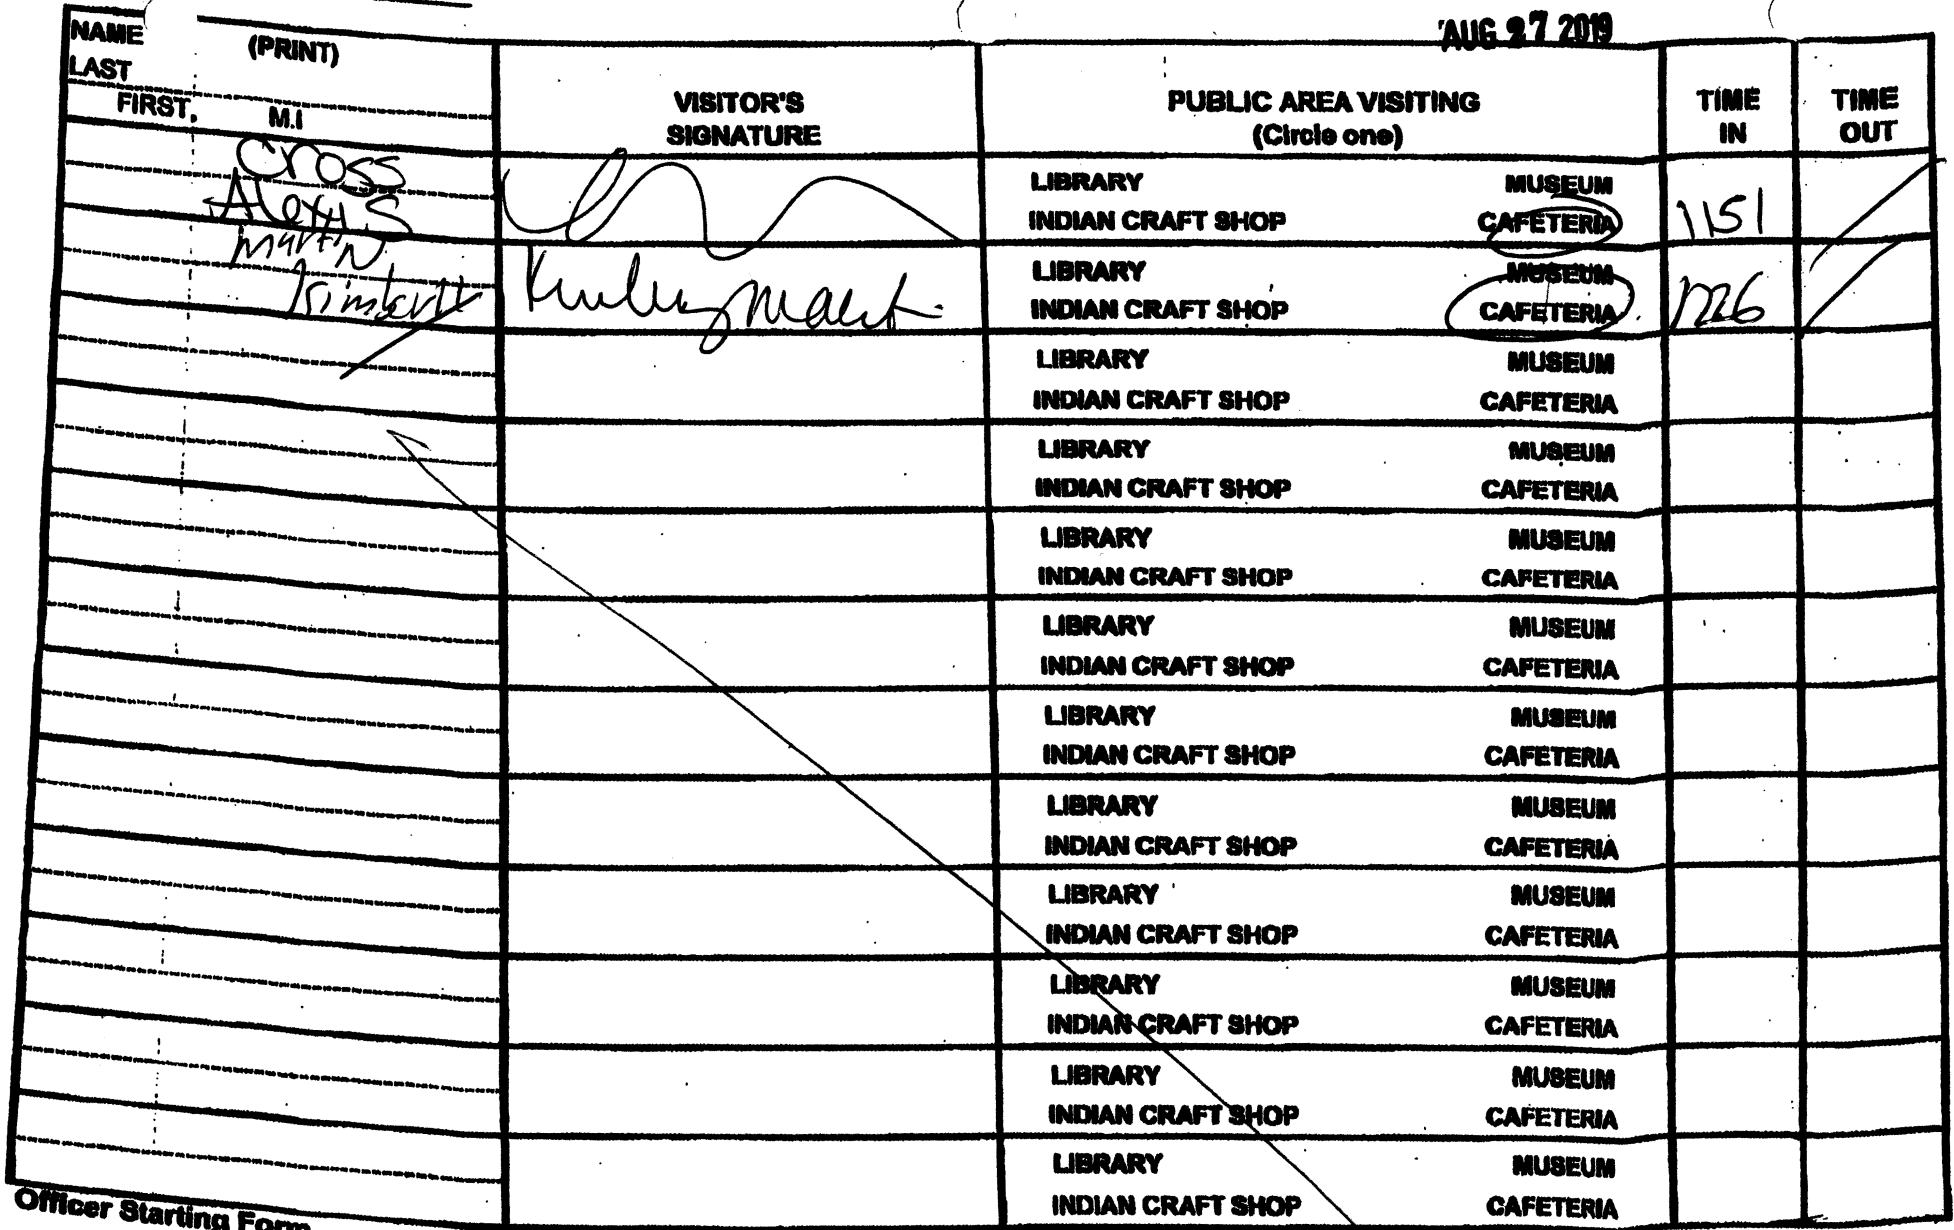 AUG 27 2019
NAME (PRINT)
LAST
FIRST, M.I
VISITOR'S
SIGNATURE
PUBLIC AREA VISITING
(Circle one)
TIME
IN
TIME
OUT
Cross
Alexis
LIBRARY MUSEUM
INDIAN CRAFT SHOP CAFETERIA
1151
Martin
Kimberly
LIBRARY MUSEUM
INDIAN CRAFT SHOP CAFETERIA
1226
LIBRARY MUSEUM
INDIAN CRAFT SHOP CAFETERIA
LIBRARY MUSEUM
INDIAN CRAFT SHOP CAFETERIA
LIBRARY MUSEUM
INDIAN CRAFT SHOP CAFETERIA
LIBRARY MUSEUM
INDIAN CRAFT SHOP CAFETERIA
LIBRARY MUSEUM
INDIAN CRAFT SHOP CAFETERIA
LIBRARY MUSEUM
INDIAN CRAFT SHOP CAFETERIA
LIBRARY MUSEUM
INDIAN CRAFT SHOP CAFETERIA
LIBRARY MUSEUM
INDIAN CRAFT SHOP CAFETERIA
LIBRARY MUSEUM
INDIAN CRAFT SHOP CAFETERIA
LIBRARY MUSEUM
INDIAN CRAFT SHOP CAFETERIA
Officer Starting Form